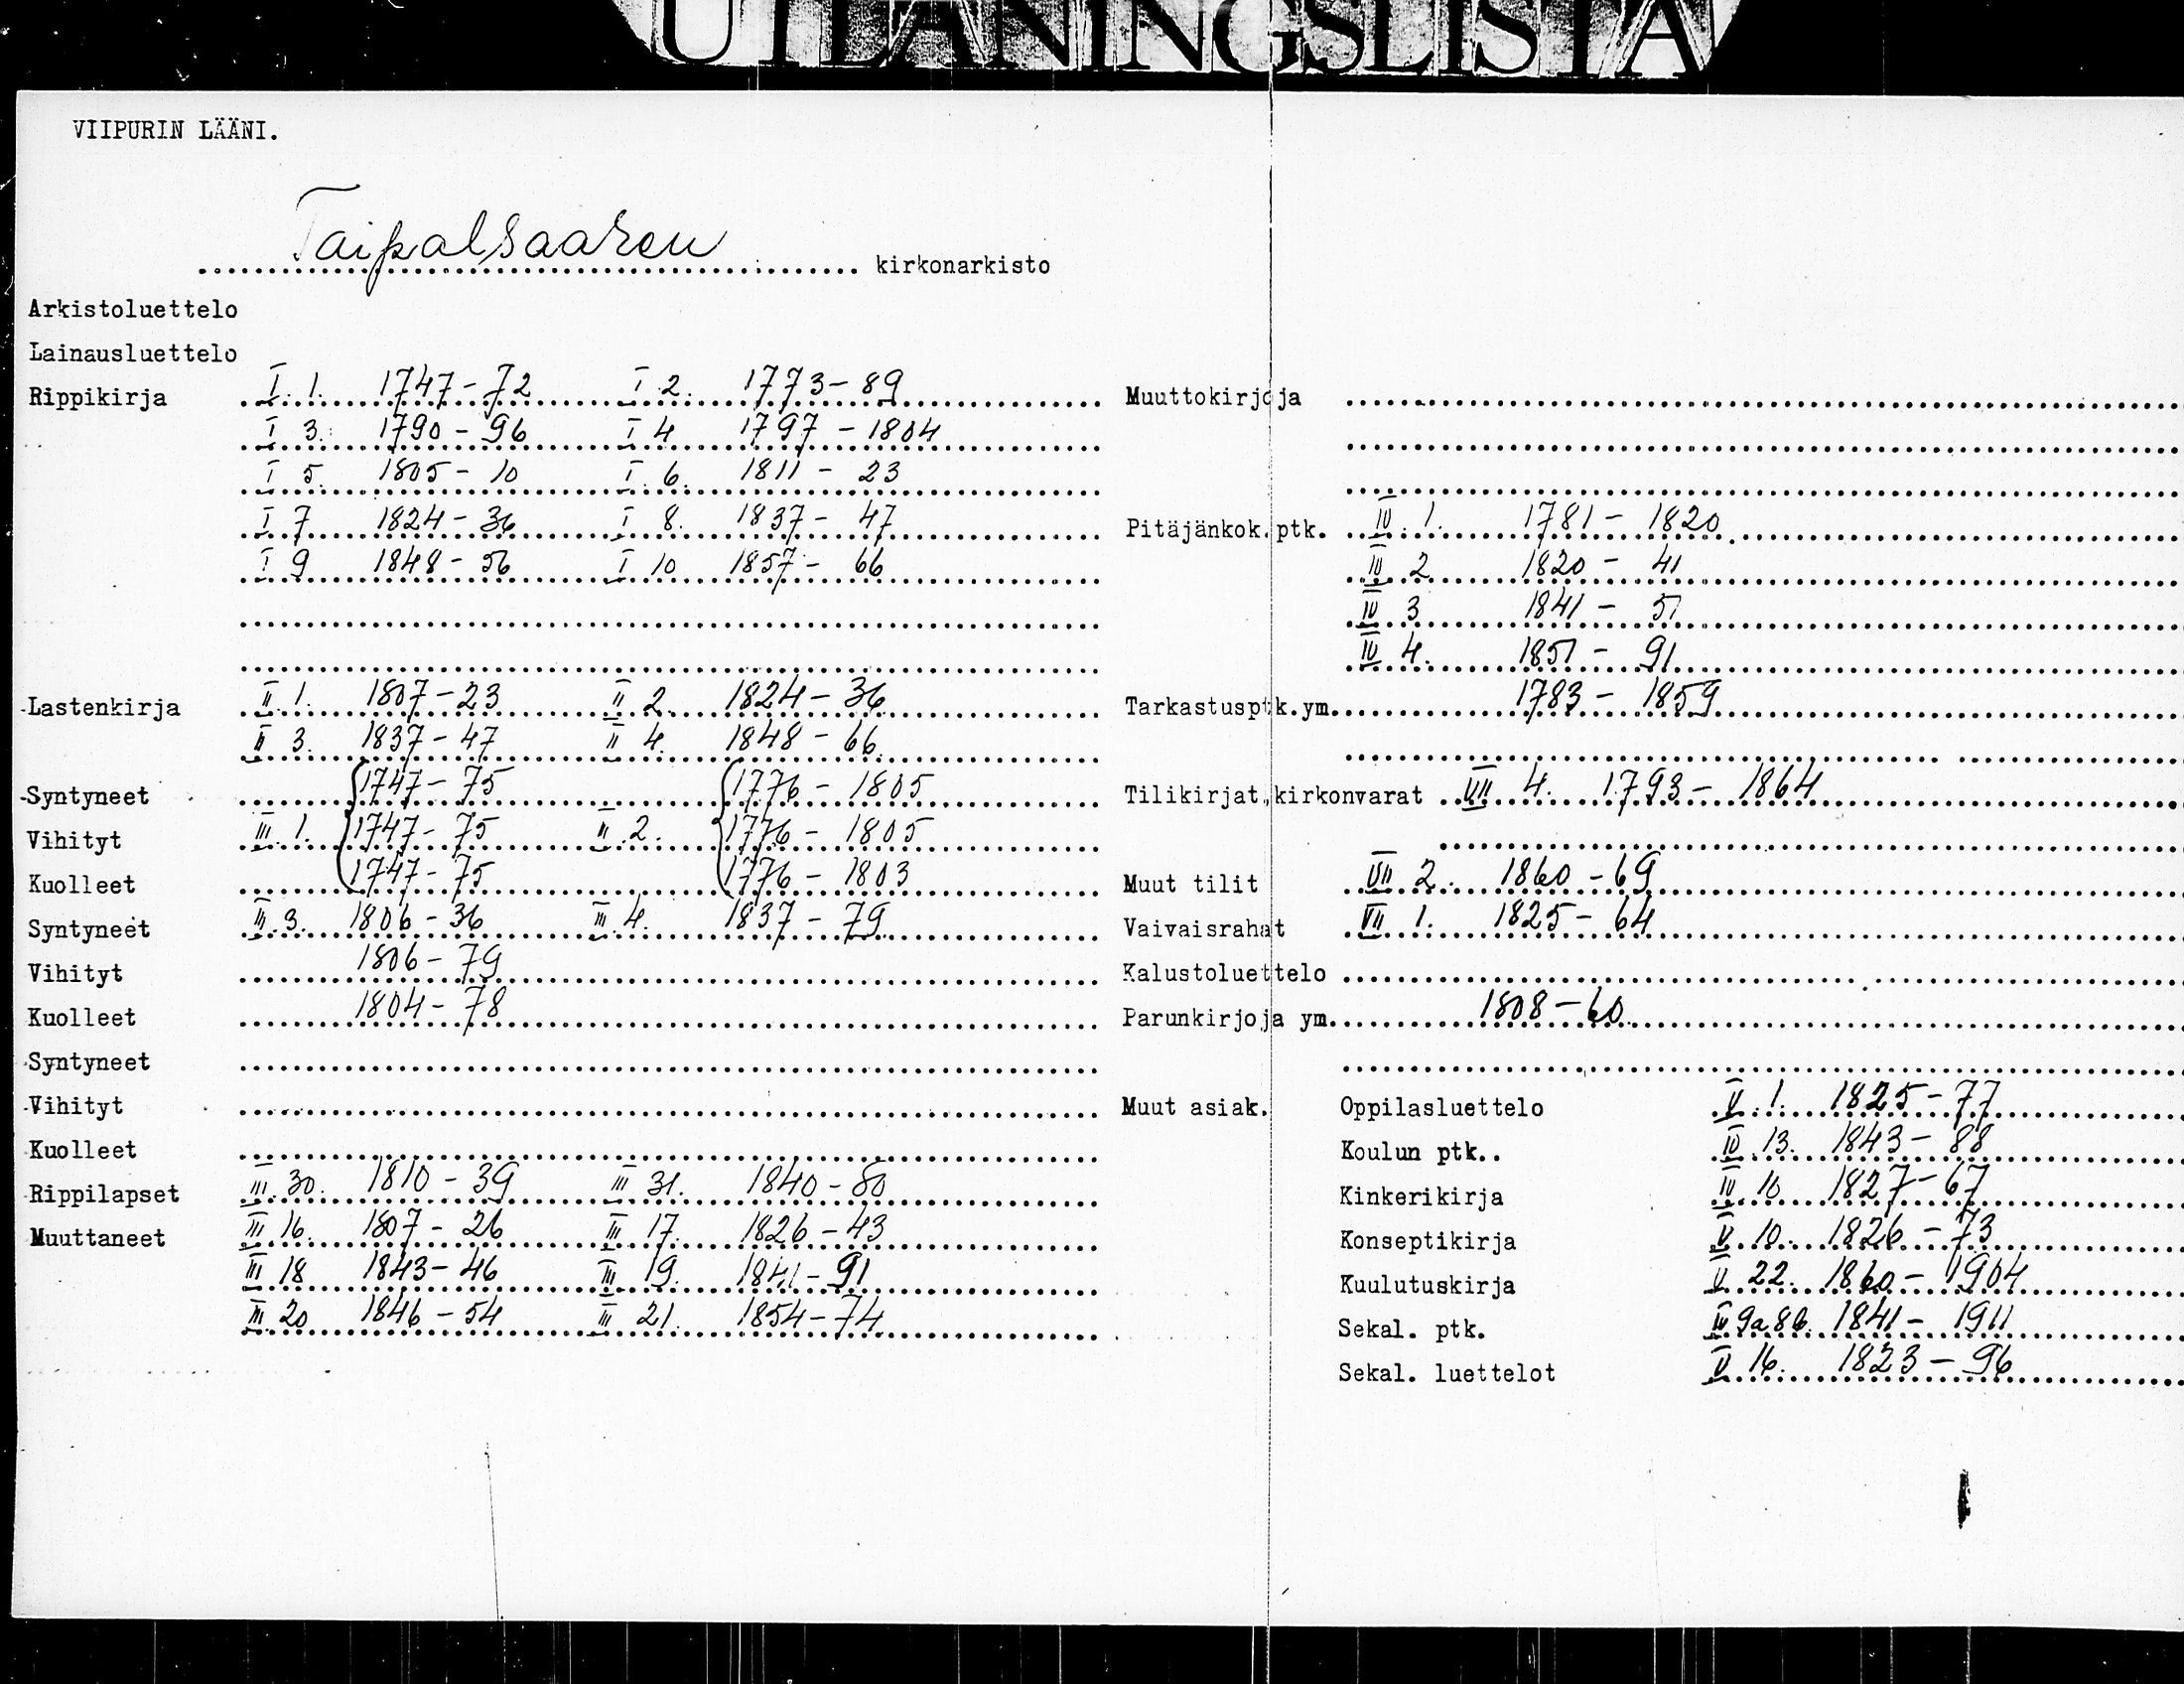 UTLÅNINGSLISTA
VIIPURIN LÄÄNI.
Taipalsaaren kirkonarkisto
Arkistoluettelo
Lainausluettelo
Rippikirja I. 1. 1747-72 I 2. 1773-89
I 3. 1790-96 I 4 1797-1804
I 5. 1805-10 I 6. 1811-23
I 7 1824-36 I 8. 1837-47
I 9 1848-56 I 10 1857-66
Lastenkirja II. 1. 1807-23 II 2. 1824-36
II 3. 1837-47 II 4. 1848-66
Syntyneet 1747-75 1776-1805
Vihityt III. 1. 1747-75 II 2. 1776-1805
Kuolleet 1747-75 1776-1803
Syntyneet III. 3. 1806-36 III 4. 1837-79
Vihityt 1806-79
Kuolleet 1804-78
Syntyneet
Vihityt
Kuolleet
Rippilapset III. 30. 1810-39 III 31. 1840-80
Muuttaneet III 16. 1807-26 III 17. 1826-43
III 18 1843-46 III 19. 1841-91
III 20 1846-54 III 21. 1854-74
Muuttokirjoja
Pitäjänkok.ptk. IV. 1. 1781-1820
IV 2 1820-41
IV 3 1841-51
IV 4. 1851-91
Tarkastusptk.ym. 1783-1859
Tilikirjat,kirkonvarat VII 4. 1793-1864
Muut tilit VII 2. 1860-69
Vaivaisrahat VII 1. 1825-64
Kalustoluettelo
Parunkirjoja ym. 1808-60
Muut asiak. Oppilasluettelo V. 1. 1825-77
Koulun ptk.. IV 13. 1843-88
Kinkerikirja IV. 10 1827-67
Konseptikirja V. 10. 1826-73
Kuulutuskirja V. 22. 1860-1904
Sekal. ptk. IV 9a8b. 1841-1911
Sekal. luettelot V 16. 1823-96